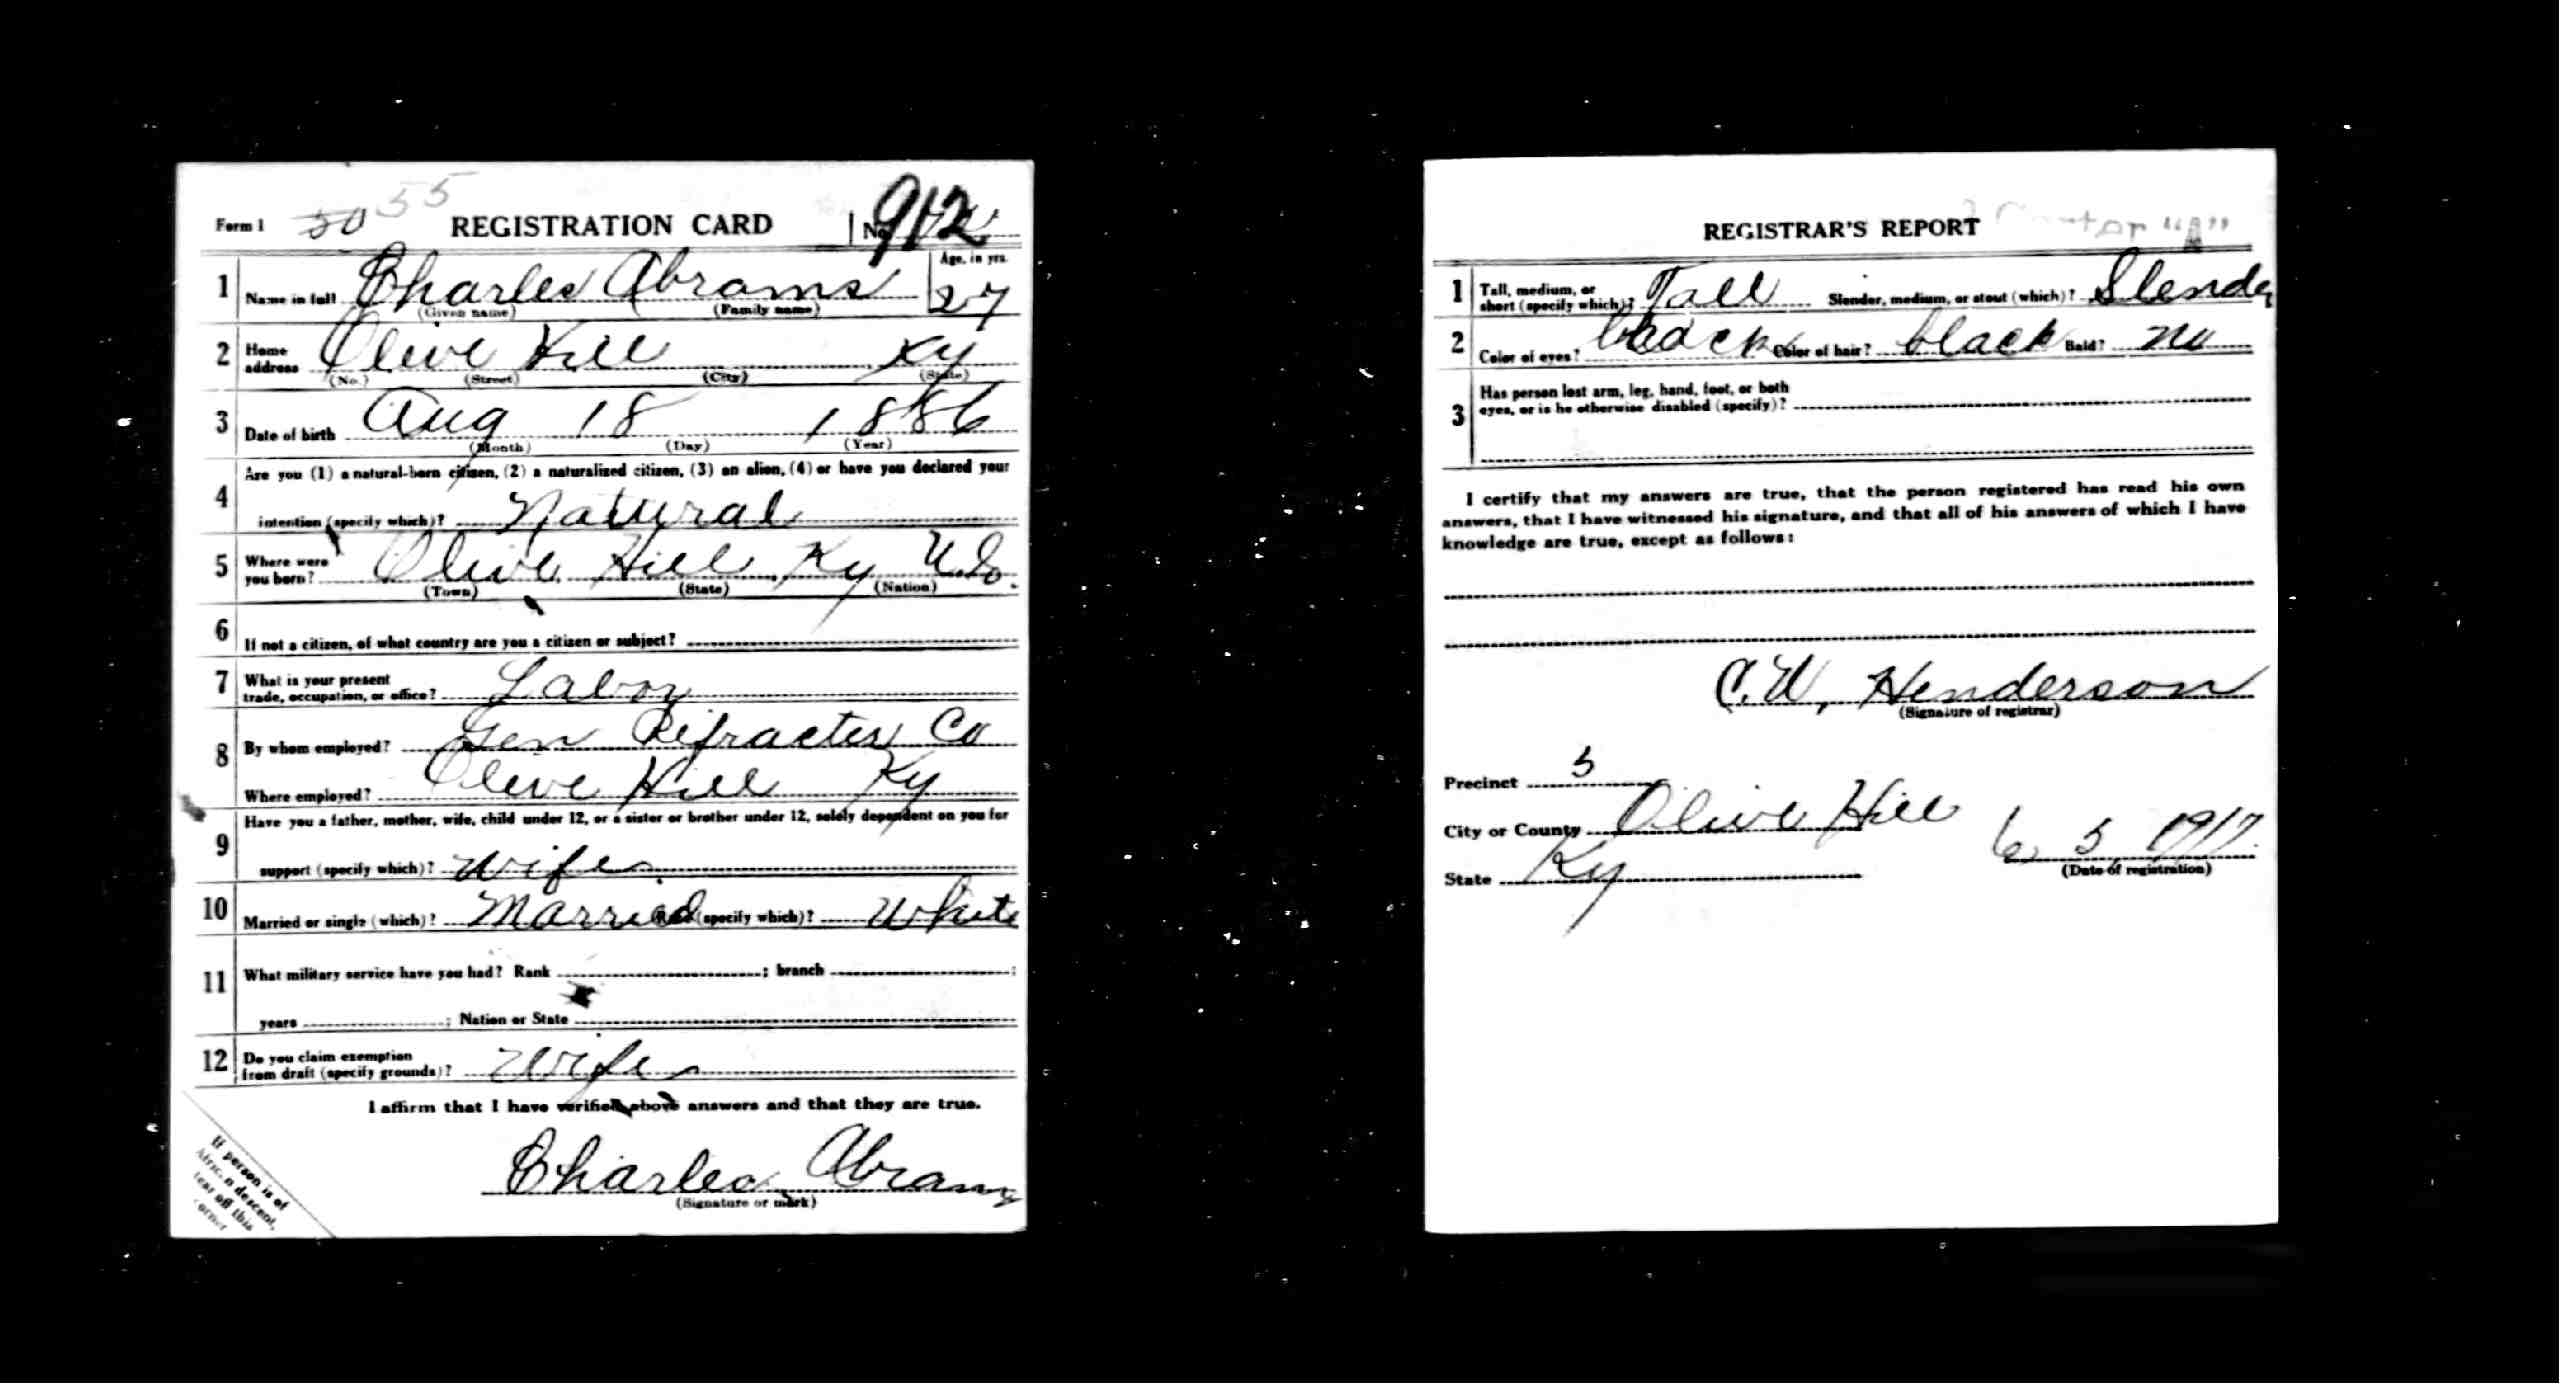 Form 1 50 55 REGISTRATION CARD No. 912
1 Name in full Charles Abrams Age, in yrs. 27
(Given name) (Family name)
2 Home address Olive Hill Ky
(No.) (Street) (City) (State)
3 Date of birth Aug 18 1886
(Month) (Day) (Year)
4 Are you (1) a natural-born citizen, (2) a naturalized citizen, (3) an alien, (4) or have you declared your
intention (specify which)? Natural
5 Where were you born? Olive Hill Ky U.S.
(Town) (State) (Nation)
6 If not a citizen, of what country are you a citizen or subject?
7 What is your present trade, occupation, or office? Labor
8 By whom employed? Gen Refracter Co
Where employed? Olive Hill Ky
9 Have you a father, mother, wife, child under 12, or a sister or brother under 12, solely dependent on you for
support (specify which)? Wife
10 Married or single (which)? Married Race (specify which)? White
11 What military service have you had? Rank ; branch ;
years ; Nation or State
12 Do you claim exemption from draft (specify grounds)? Wife
I affirm that I have verified above answers and that they are true.
Charles Abrams
(Signature or mark)
If person is of
African descent,
tear off this
corner
REGISTRAR'S REPORT "A"
1 Tall, medium, or short (specify which)? Tall Slender, medium, or stout (which)? Slender
2 Color of eyes? black Color of hair? black Bald? no
3 Has person lost arm, leg, hand, foot, or both
eyes, or is he otherwise disabled (specify)?
I certify that my answers are true, that the person registered has read his own
answers, that I have witnessed his signature, and that all of his answers of which I have
knowledge are true, except as follows:
C. W. Henderson
(Signature of registrar)
Precinct 5
City or County Olive Hill
State Ky 6 5 1917
(Date of registration)